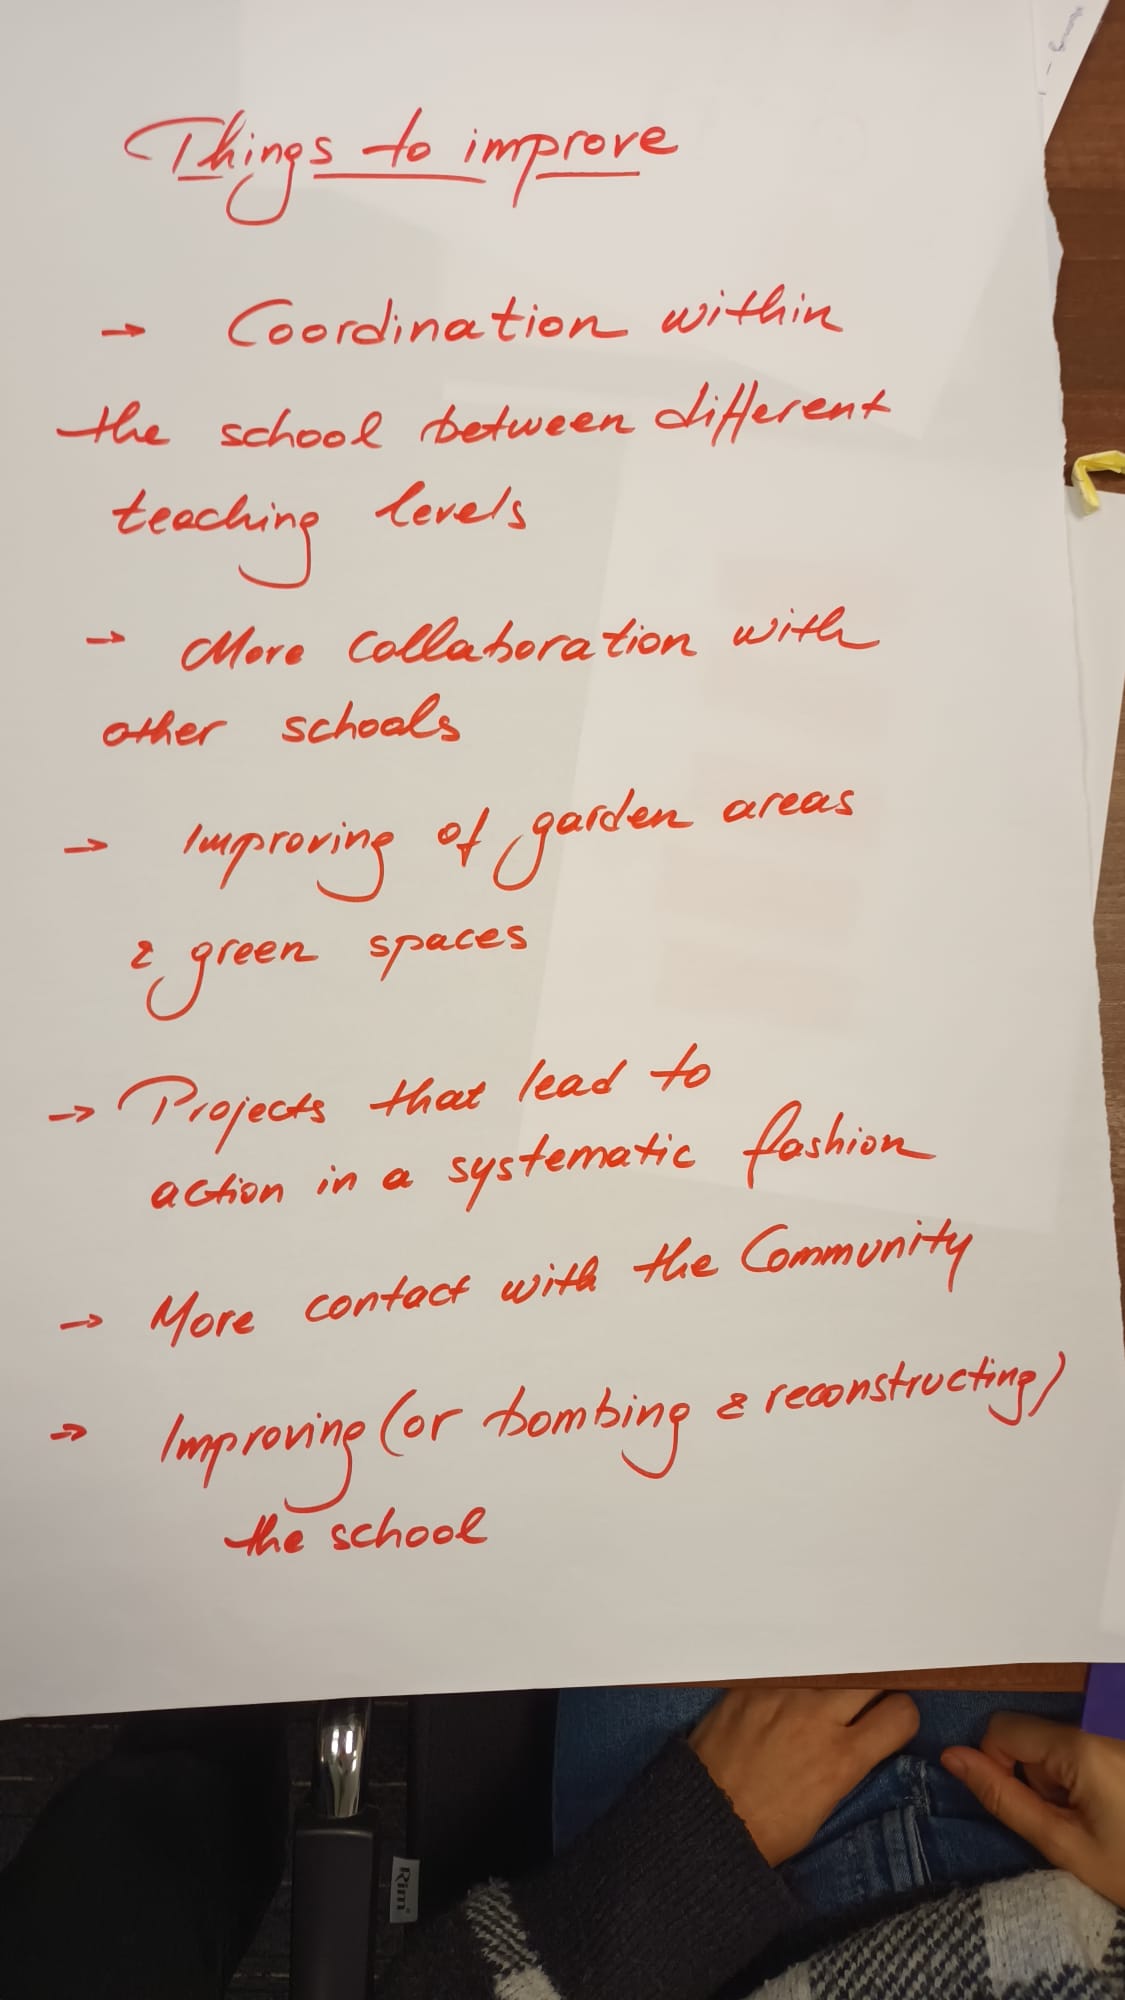 Things to improve
→ Coordination within
the school between different
teaching levels
→ More collaboration with
other schools
→ Improving of garden areas
& green spaces
→ Projects that lead to
action in a systematic fashion
→ More contact with the Community
→ Improving (or bombing & reconstructing)
the school
Rim